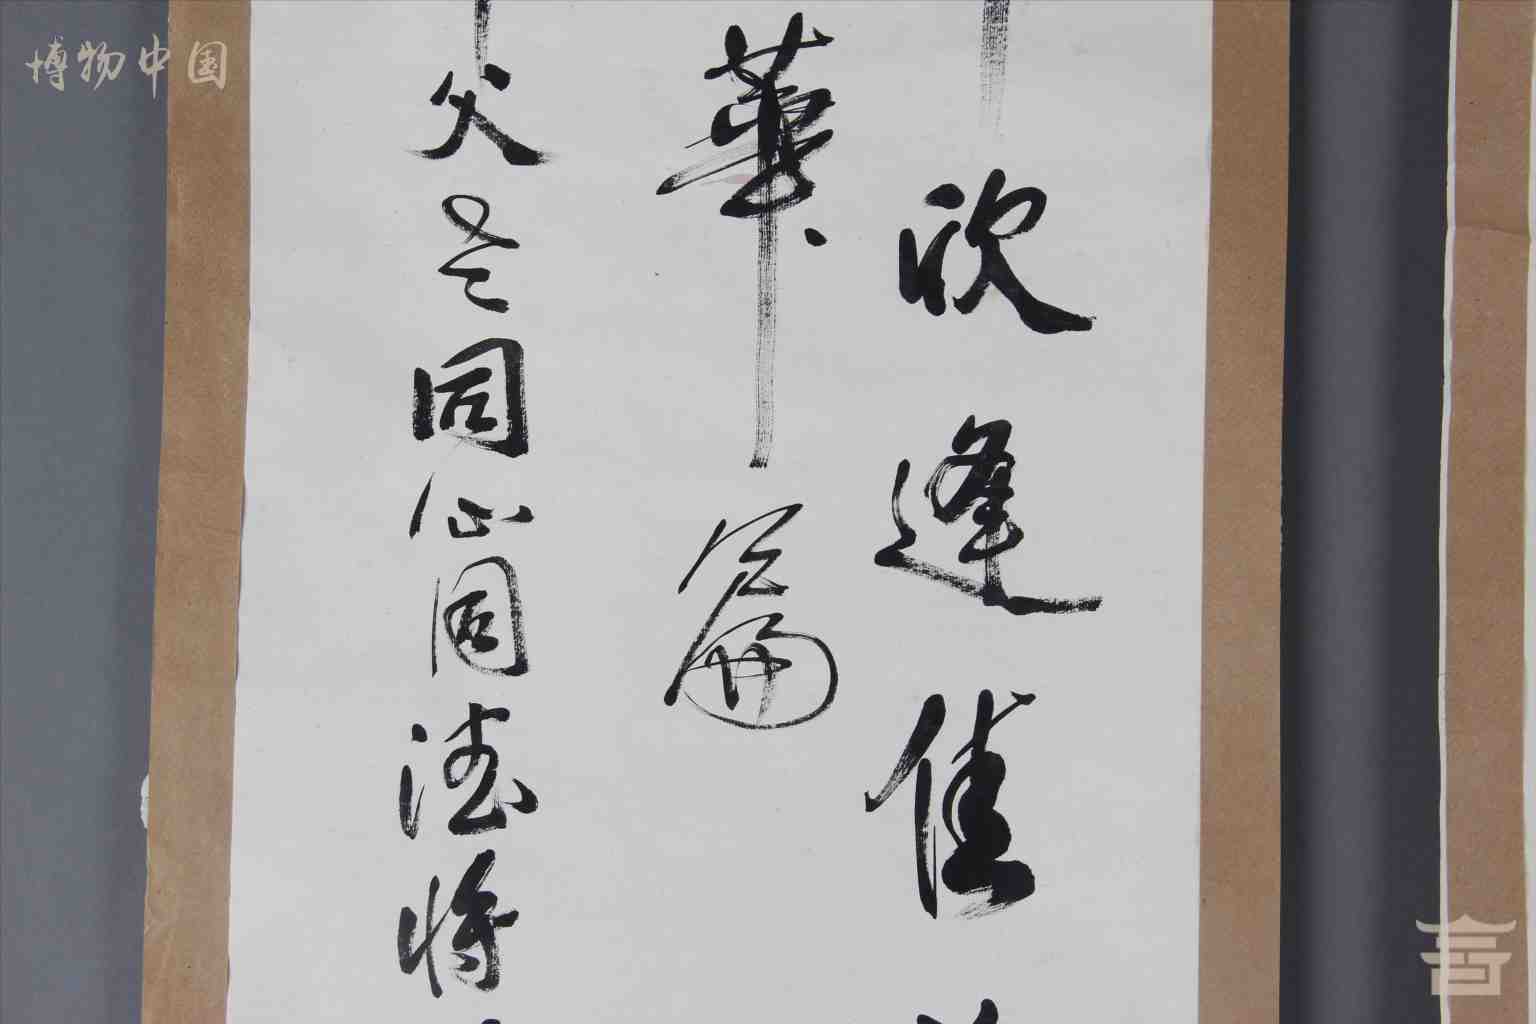 博物中国
欣逢佳
華篇
父老同心同德将